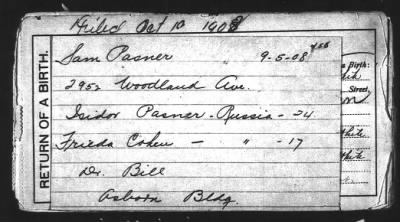 Filed Oct 10 1908
RETURN OF A BIRTH.
Sam Pasner 9-5-08
2952 Woodland Ave.
Isidor Pasner - Russia - 24
Frieda Cohen - " - 17
Dr. Bill
Osborn Bldg.
Birth:
Street,
White
White